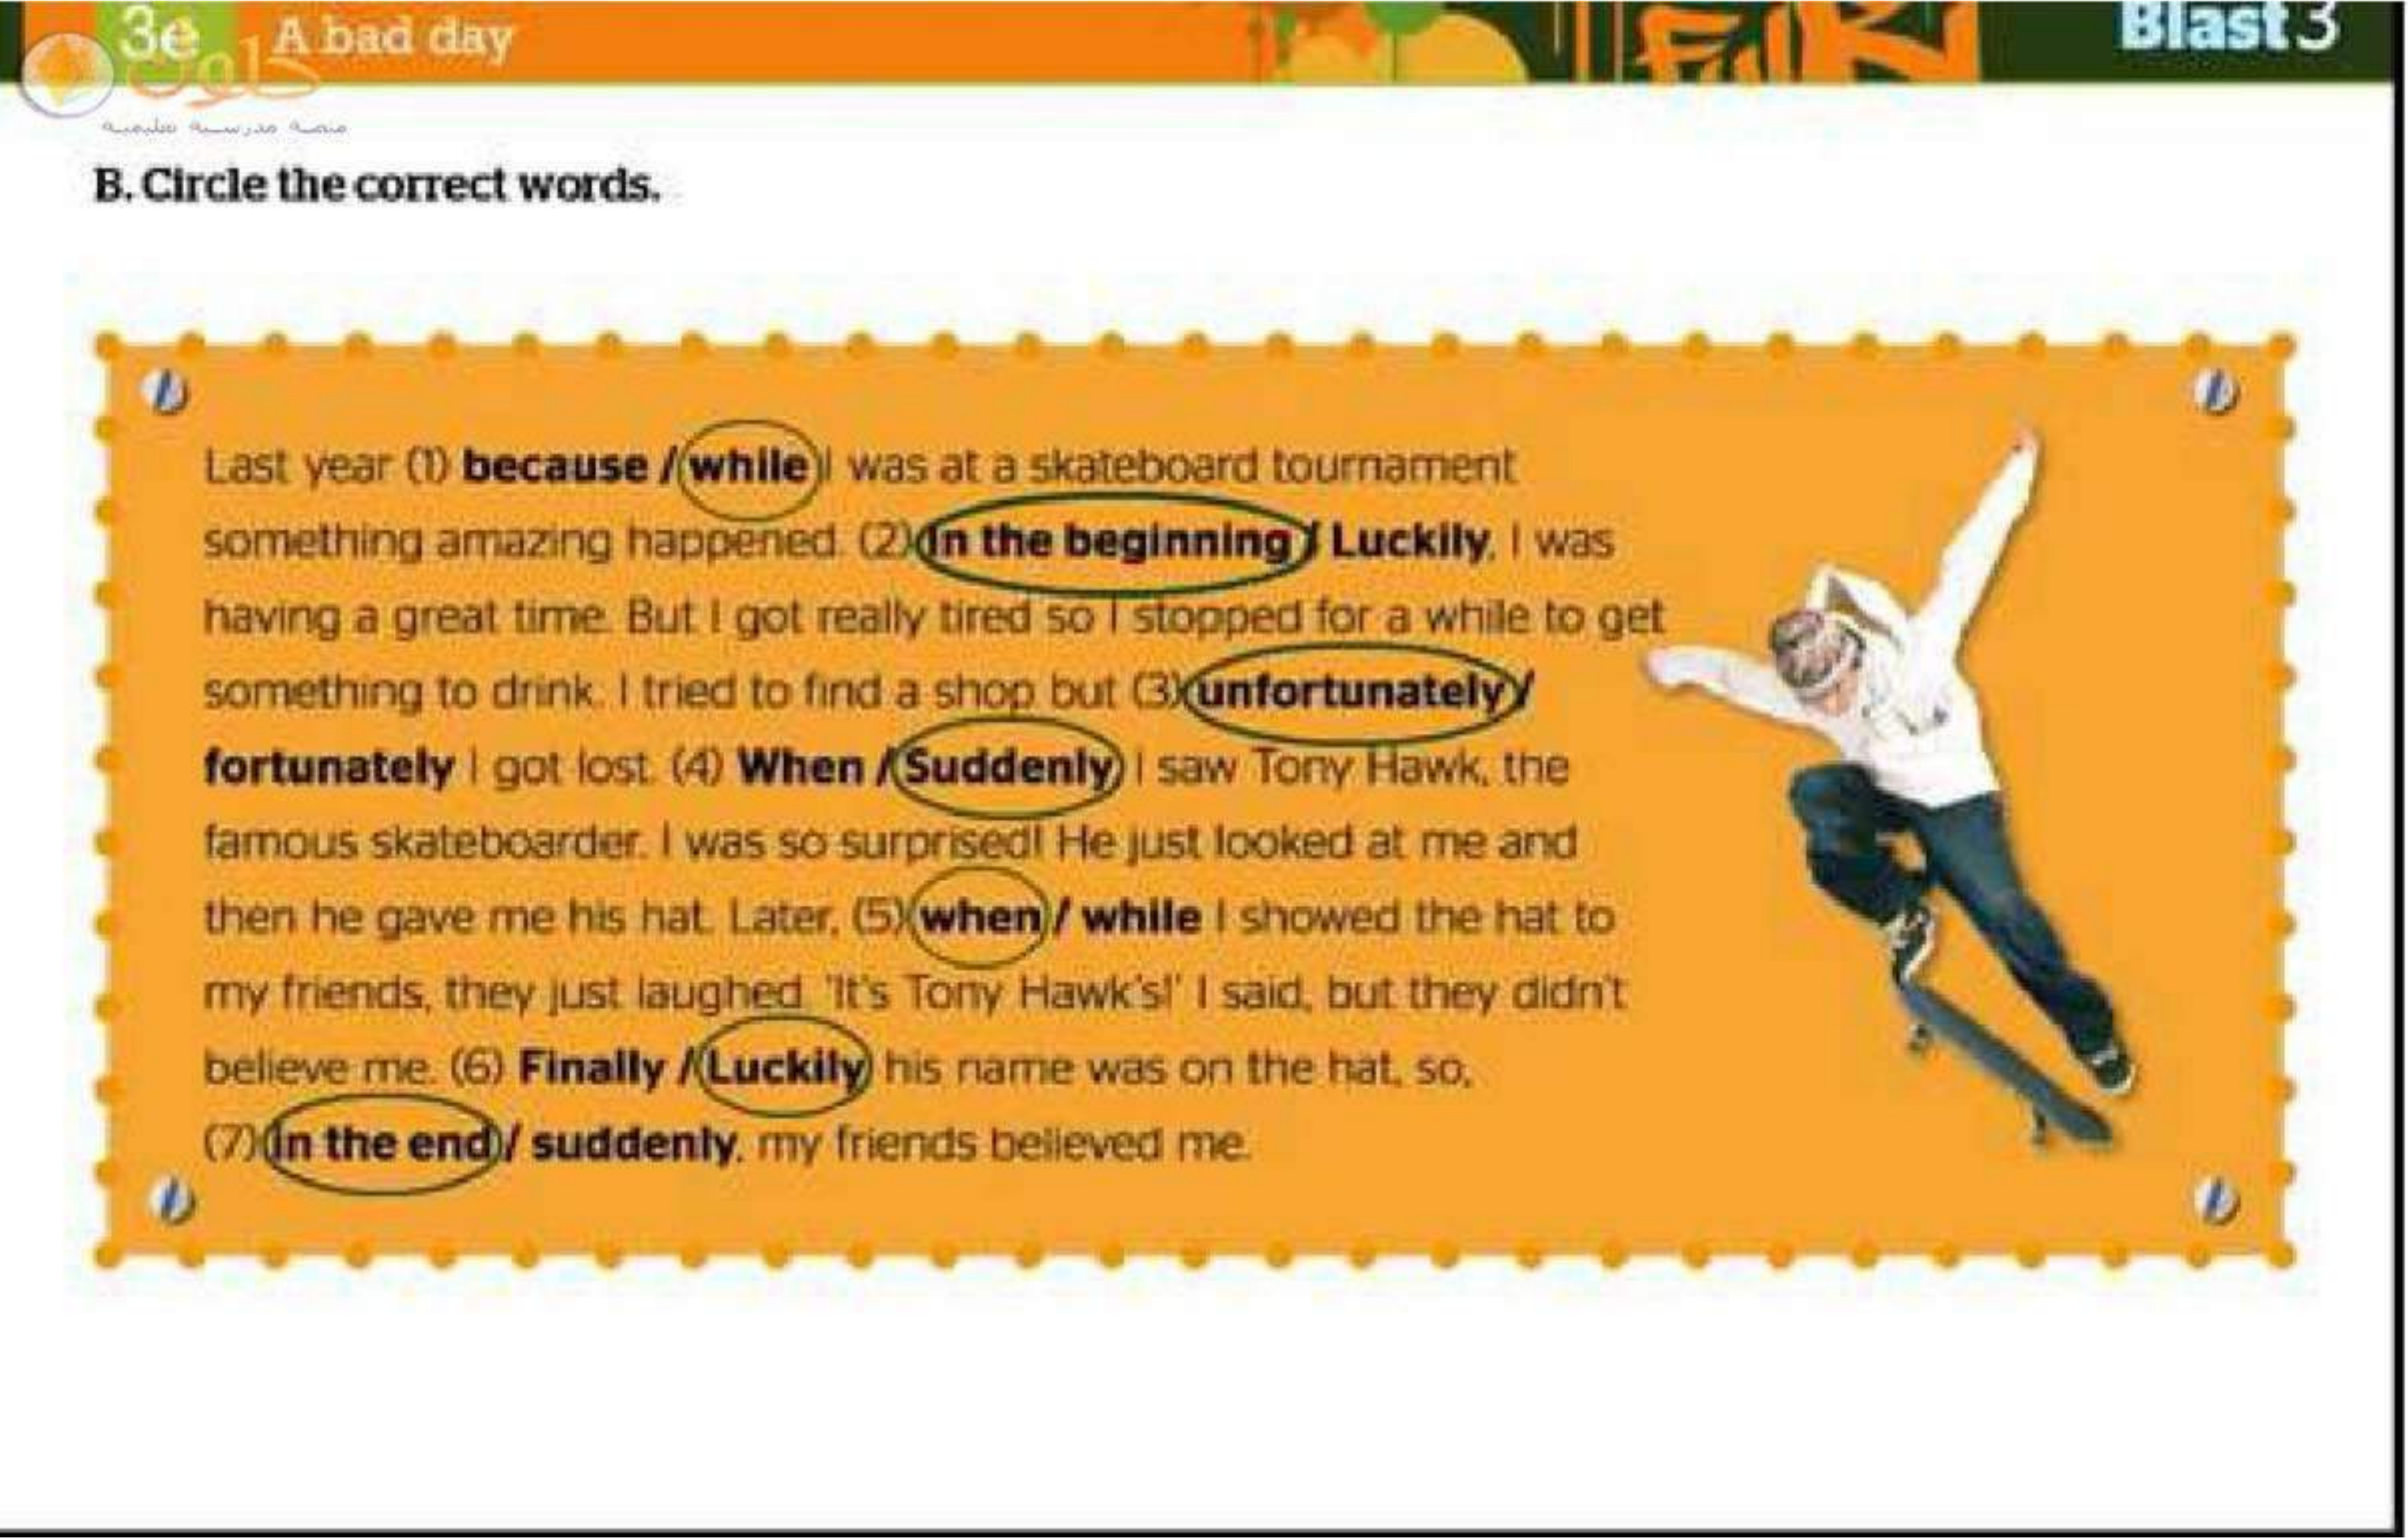 3e A bad day
Blast 3
حلول
منصة مدرسية تعليمية
B. Circle the correct words.
Last year (1) because / while I was at a skateboard tournament
something amazing happened. (2) In the beginning / Luckily, I was
having a great time. But I got really tired so I stopped for a while to get
something to drink. I tried to find a shop but (3) unfortunately /
fortunately I got lost. (4) When / Suddenly I saw Tony Hawk, the
famous skateboarder. I was so surprised! He just looked at me and
then he gave me his hat. Later, (5) when / while I showed the hat to
my friends, they just laughed. 'It's Tony Hawk's!' I said, but they didn't
believe me. (6) Finally / Luckily his name was on the hat, so,
(7) in the end / suddenly, my friends believed me.